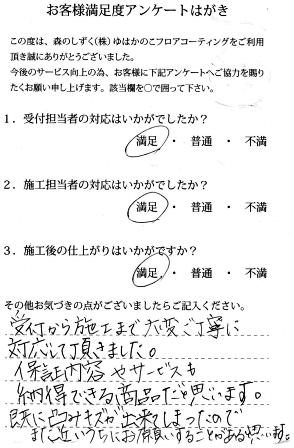 お客様満足度アンケートはがき
この度は、森のしずく(株)ゆはかのこフロアコーティングをご利用
頂き誠にありがとうございました。
今後のサービス向上の為、お客様に下記アンケートへご協力を賜り
たくお願い申し上げます。該当欄を○で囲って下さい。
1．受付担当者の対応はいかがでしたか？
満足 ・ 普通 ・ 不満
2．施工担当者の対応はいかがでしたか？
満足 ・ 普通 ・ 不満
3．施工後の仕上がりはいかがですか？
満足 ・ 普通 ・ 不満
その他お気づきの点がございましたらご記入ください。
受付から施工まで大変ご丁寧に
対応して頂きました。
保証内容やサービスも
納得できる商品だと思います。
既に凹みキズが出来てしまったので
また近いうちにお願いすることがあると思います。